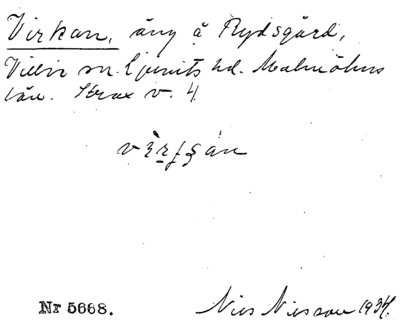 Virkan, äng å Rydsgård,
Villie sn. Ljunits hd. Malmöhus
län. Strax v. 4
Nr 5668.
Nils Nilsson 1934.